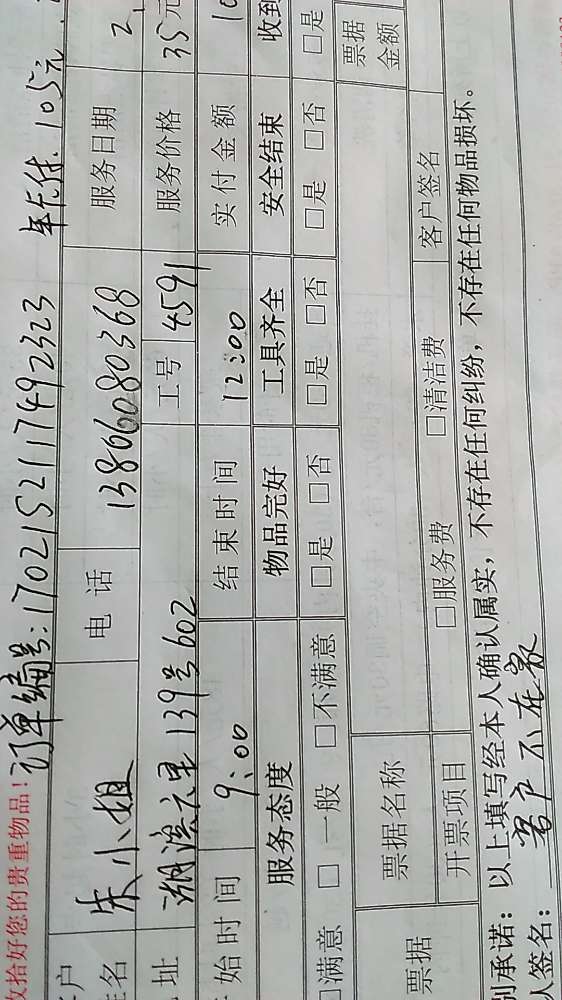 收拾好您的贵重物品! 订单编号:17021521117492323 105元
客户姓名 朱小姐 电话 13806080368 服务日期 2
地址 湖滨六里139号602 工号 4591 服务价格 35元
开始时间 9:00 结束时间 12:00 实付金额 10
服务态度 物品完好 工具齐全 安全结束 收到
□满意 □一般 □不满意 □是 □否 □是 □否 □是 □否 □是
票据 票据名称 票据金额
开票项目 □服务费 □清洁费 客户签名
别承诺:以上填写经本人确认属实,不存在任何纠纷,不存在任何物品损坏。
人签名:客户不在家